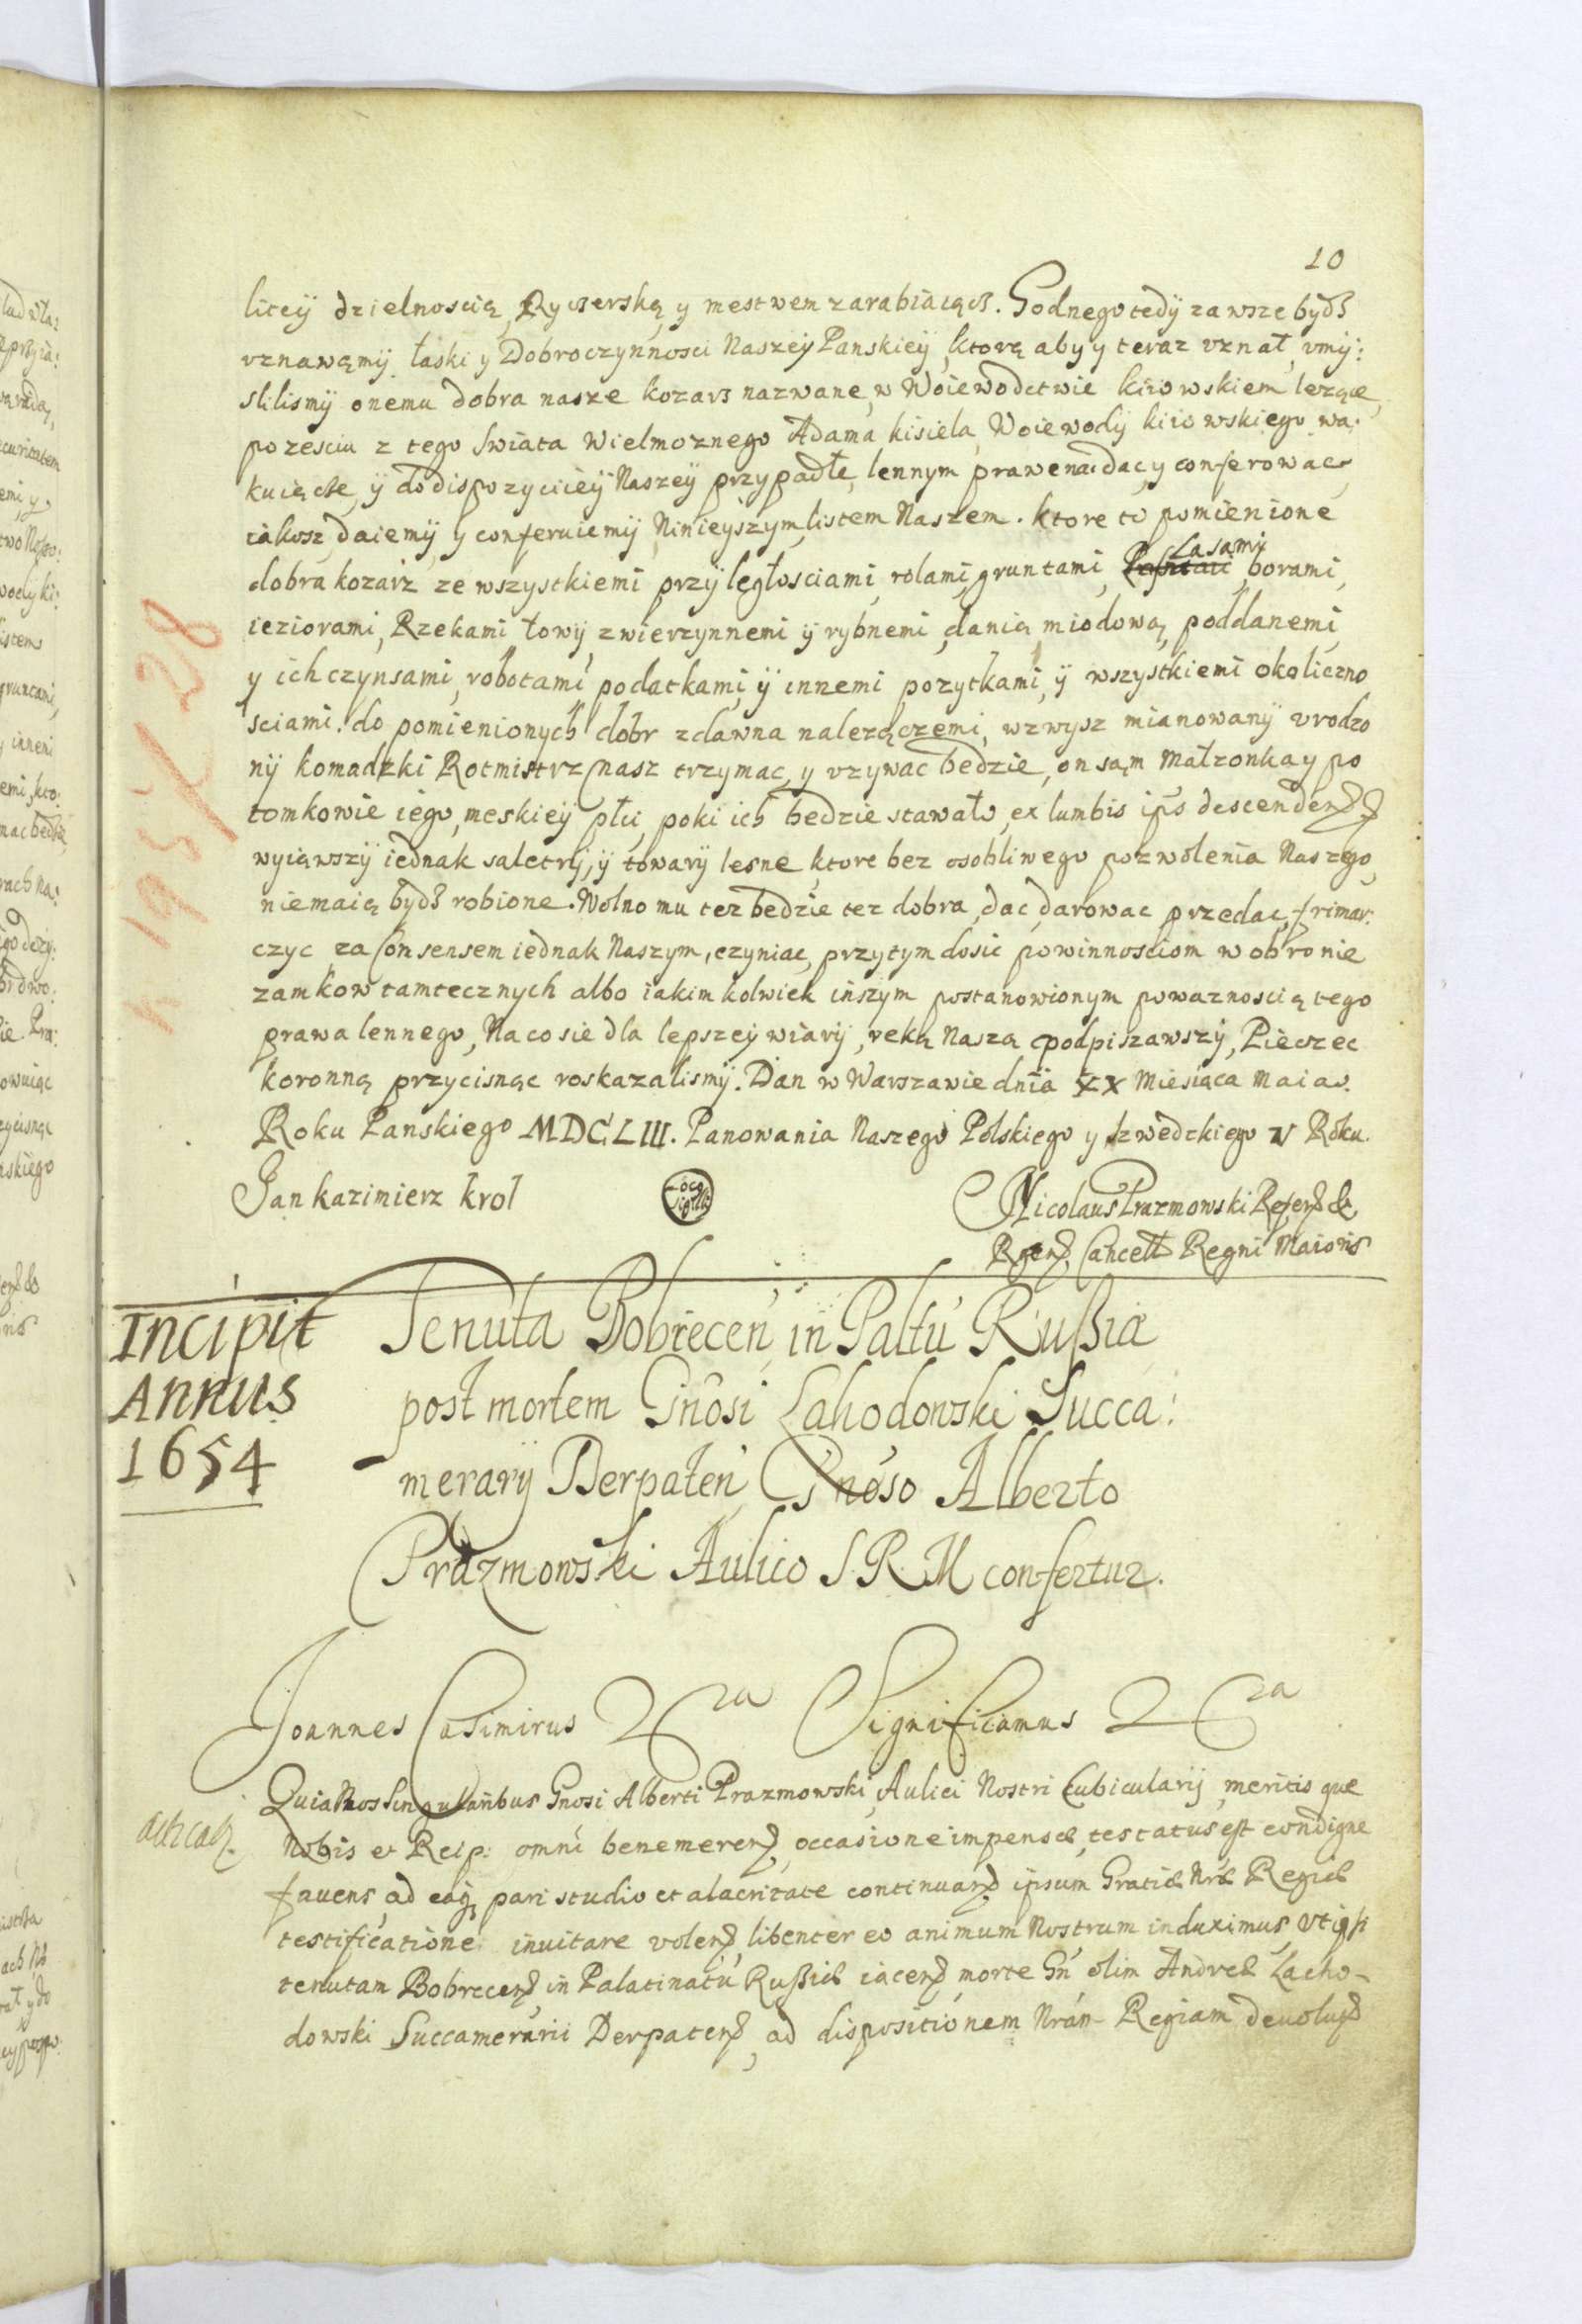 10
liteÿ dzielnoscią, Rycerską y mestwem zarabiaiącÿ. Godnego tedÿ zawsze bydz
vznawamÿ łaski y Dobroczynnosci Naszeÿ Panskieÿ, ktorą aby y teraz vznał, vmÿ:
slilismÿ onemu dobra nasze kozarz nazwane, w Woiewodctwie kiiowskiem lezące,
po zesciu z tego swiata Wielmoznego Adama kisiela Woiewodÿ kiiowskiego wa:
kuiącke, ÿ do dispozyciieÿ Naszeÿ przypadłe, lennym prawem dac y conferowac,
iakosz daiemÿ y conferuiemÿ Ninieyszym listem Naszem. ktore to pomienione
dobra kozarz ze wszystkiemi przÿległosciami, rolami, gruntami, Lasami borami,
ieziorami, Rzekami, łowÿ zwierzynnemi ÿ rybnemi, danią miodową, poddanemi
y ich czynsami, robotami podatkami, ÿ innemi pozytkami, ÿ wszystkiemi okoliczno
sciami do pomienionych dobr zdawna nalezączemi, wzwysz mianowanÿ vrodzo
nÿ komadzki Rotmistrz nasz trzymac, y vzywac bedzie, on sąm Małzonka y po
tomkowie iego, meskieÿ płci, poki ich bedzie stawało, ex lumbis ips descendend
wyiąwszÿ iednak saletrÿ, ÿ towarÿ lesne, ktore bez osobliwego pozwolenia Naszego,
niemaią bydz robione. Wolno mu tez bedzie tez dobra, dac, darowac przedac, frimar:
czyc za Consensem iednak Naszym, czyniac, przytym dosic powinnosciom w obronie
zamkow tamtecznych albo iakimkolwiek inszym postanowionym powaznoscią tego
prawa lennego, Na co sie dla lepszeÿ wiarÿ, reką Naszą podpiszawszÿ, Pieczec
koronną przycisnąc roskazalismÿ. Dan w Warszawie dnia XX Miesiąca Maia.
Roku Panskiego MDCLIII. Panowania Naszego Polskiego y szwedzkiego V Roku.
Jan kazimierz krol
Loco Sigilli
Nicolaus Prazmowski Referend &
Regend Cancell Regni Maioris
Incipit
Annus
1654
Tenuta Bobrecen in Paltu Rußiæ
post mortem Gnosi Lahodowski Succa:
merarÿ Derpaten Gnoso Alberto
Prazmowski Aulico S. R. M confertur.
Joannes Casimirus &ra Significamus &ra
Quia Nos singularibus Gnosi Alberti Prazmowski, Aulici Nostri Cubicularÿ, meritis que
Nobis et Reip: omni benemerend occasione impense, testatus est condigne
favens, ad eaq pari studio et alacritate continuand ipsum Gratiæ Nræ Regiæ
testificatione inuitare volens, libenter eo animum Nostrum induximus, vti ipsi
tenutam Bobrecens in Palatinatu Rußiæ iacens, morte Gn olim Andreæ Lacho-
dowski Succamerarii Derpatens, ad dispositionem Nram Regiam deuolut